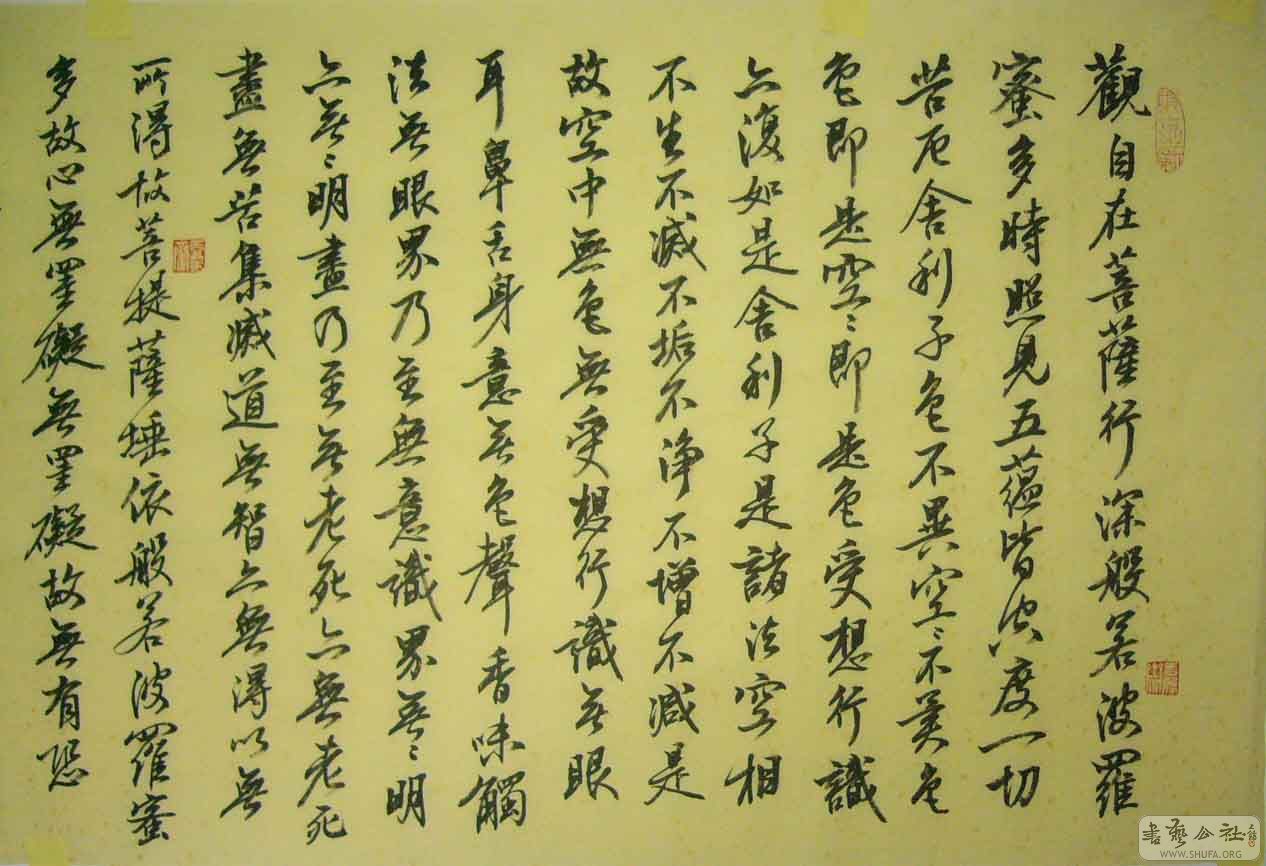 觀自在菩薩行深般若波羅
蜜多時照見五蘊皆空度一切
苦厄舍利子色不異空〻不異色
色即是空〻即是色受想行識
亦復如是舍利子是諸法空相
不生不滅不垢不淨不增不減是
故空中無色無受想行識無眼
耳鼻舌身意無色聲香味觸
法無眼界乃至無意識界無〻明
亦無〻明盡乃至無老死亦無老死
盡無苦集滅道無智亦無得以無
所得故菩提薩埵依般若波羅蜜
多故心無罣礙無罣礙故無有恐
書藝公社
WWW.SHUFA.ORG